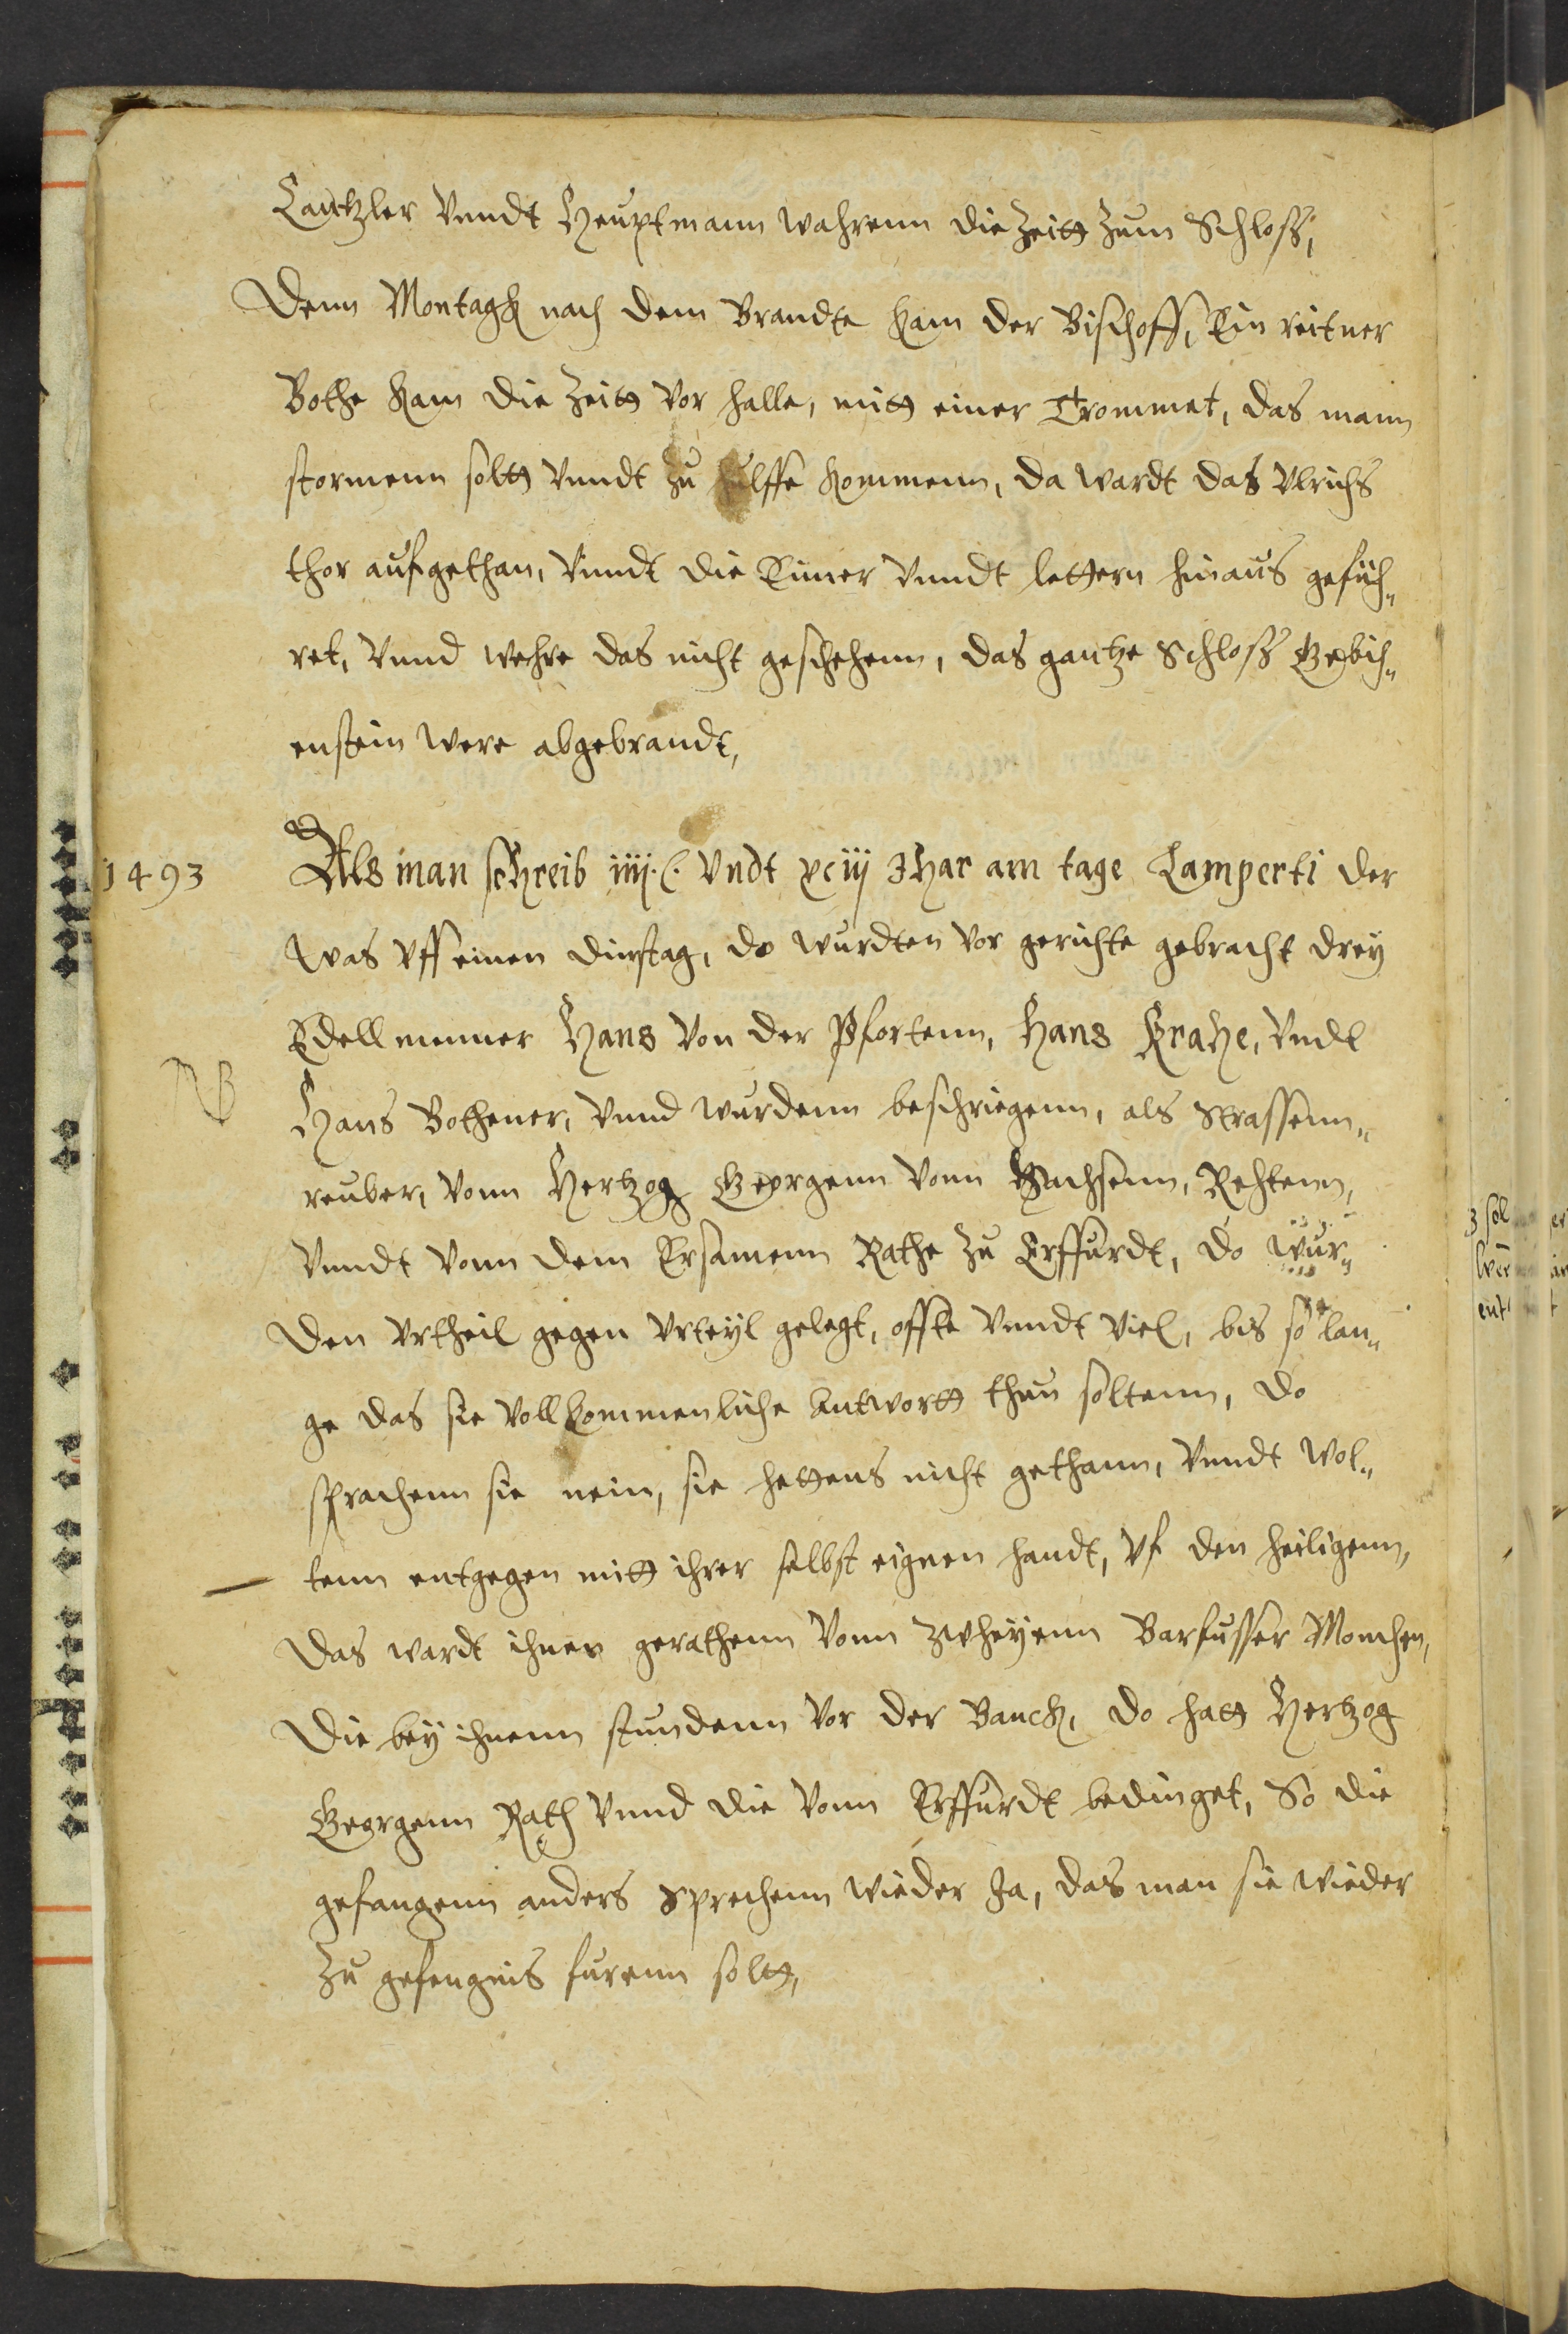 Cantzler Vnndt Heuptmann wahrenn die Zeitt Zum Schloß,
Denn Montagk nach dem Brandte kam der Bischoff, Ein reitner
Bothe kam die Zeitt vor Halle, mitt einer Trommet, das mann
stormenn soltt Vnndt Zu hulffe kommenn, da wardt das Vlrichs
thor aufgethan, Vnndt die Eimer Vnndt lettern hinaus gefüh„
ret, Vnnd wehre das nicht geschehenn, das gantze Schloß Gebich„
enstein were abgebrandt,
1493 Als man schreib iiij. C. Vndt xciij Jhar am tage Lamperti der
Was Vff einen dinstag, do wurdten vor gerichte gebracht drey
Edellmenner Hans Von der Pfortenn, Hans Krahe, Vndt
NB Hans Bothener, Vnnd wurdenn beschriegenn, als Strassenn„
reuber, Vonn Hertzog Georgenn Vonn Sachsenn, Rehtenn,
Vnndt Vonn dem Ersamenn Rathe Zu Erffurdt, do wur„
den Vrtheil gegen Vrteyl gelegt, offte Vnndt viel, bis so lan„
ge das sie Vollkommenliche Antwortt thun soltenn, do
sprachenn sie nein, sie hettens nicht gethann, Vnndt wol„
tenn entgegen mitt ihrer selbst eignen handt, Vf den heiligenn,
Das wardt ihnen gerathenn Vonn zwheyenn Barfusser Monchen,
Die bey ihnenn stundenn Vor der Banck, do hatt Hertzog
Georgenn Rath Vnnd die Vonn Erffurdt bedinget, So die
gefangenn anders Sprechenn wieder Ja, das man sie wieder
Zu gefengnis furenn soltt,